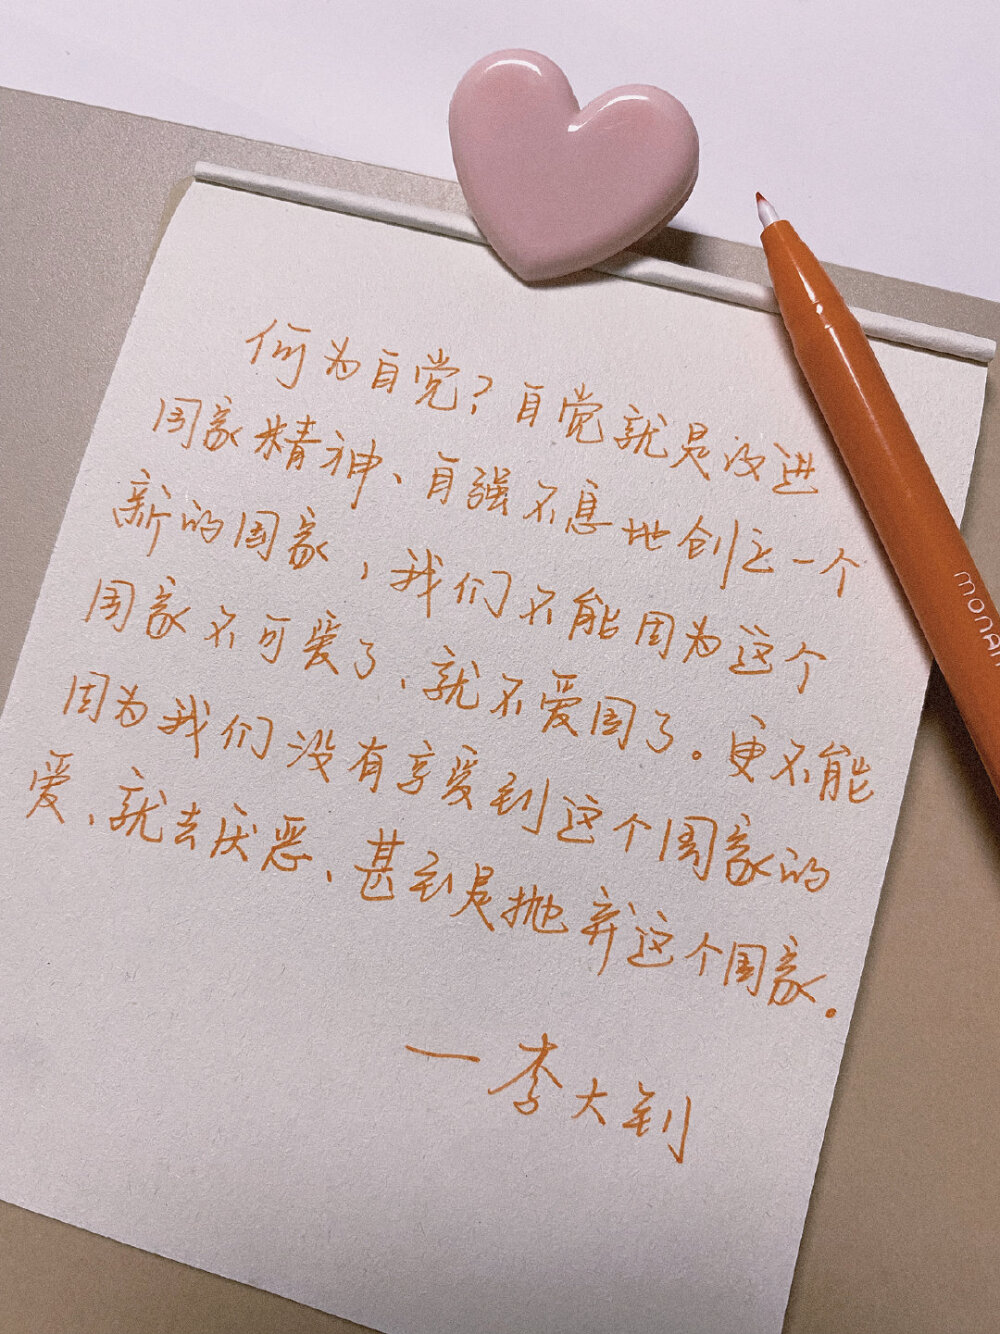 何为自觉？自觉就是改进
国家精神、自强不息地创立一个
新的国家，我们不能因为这个
国家不可爱了、就不爱国了。更不能
因为我们没有享受到这个国家的
爱、就去厌恶、甚至是抛弃这个国家。
一李大钊
MONAMI